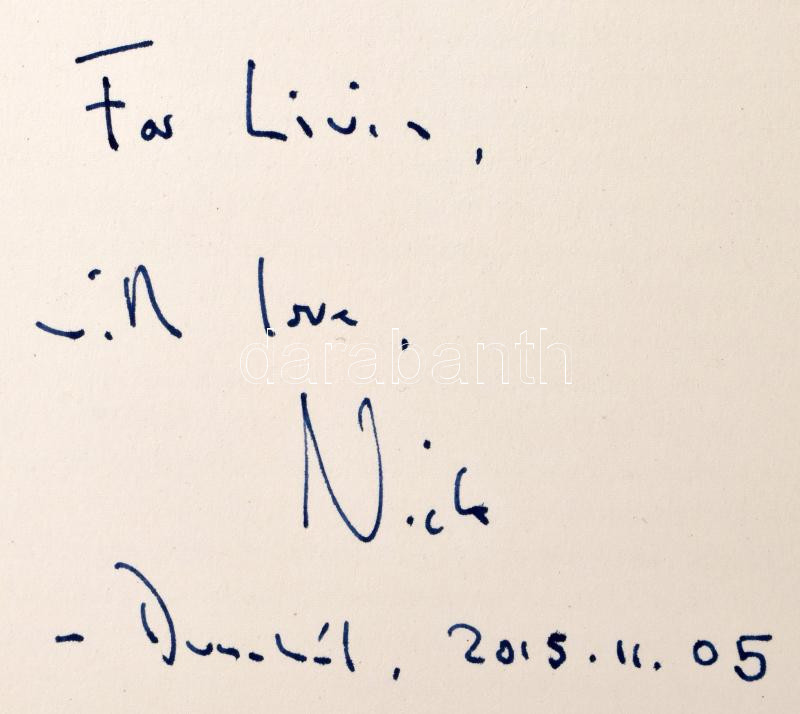 For Livia,
with love,
darabanth
Nick
- 2015.11.05